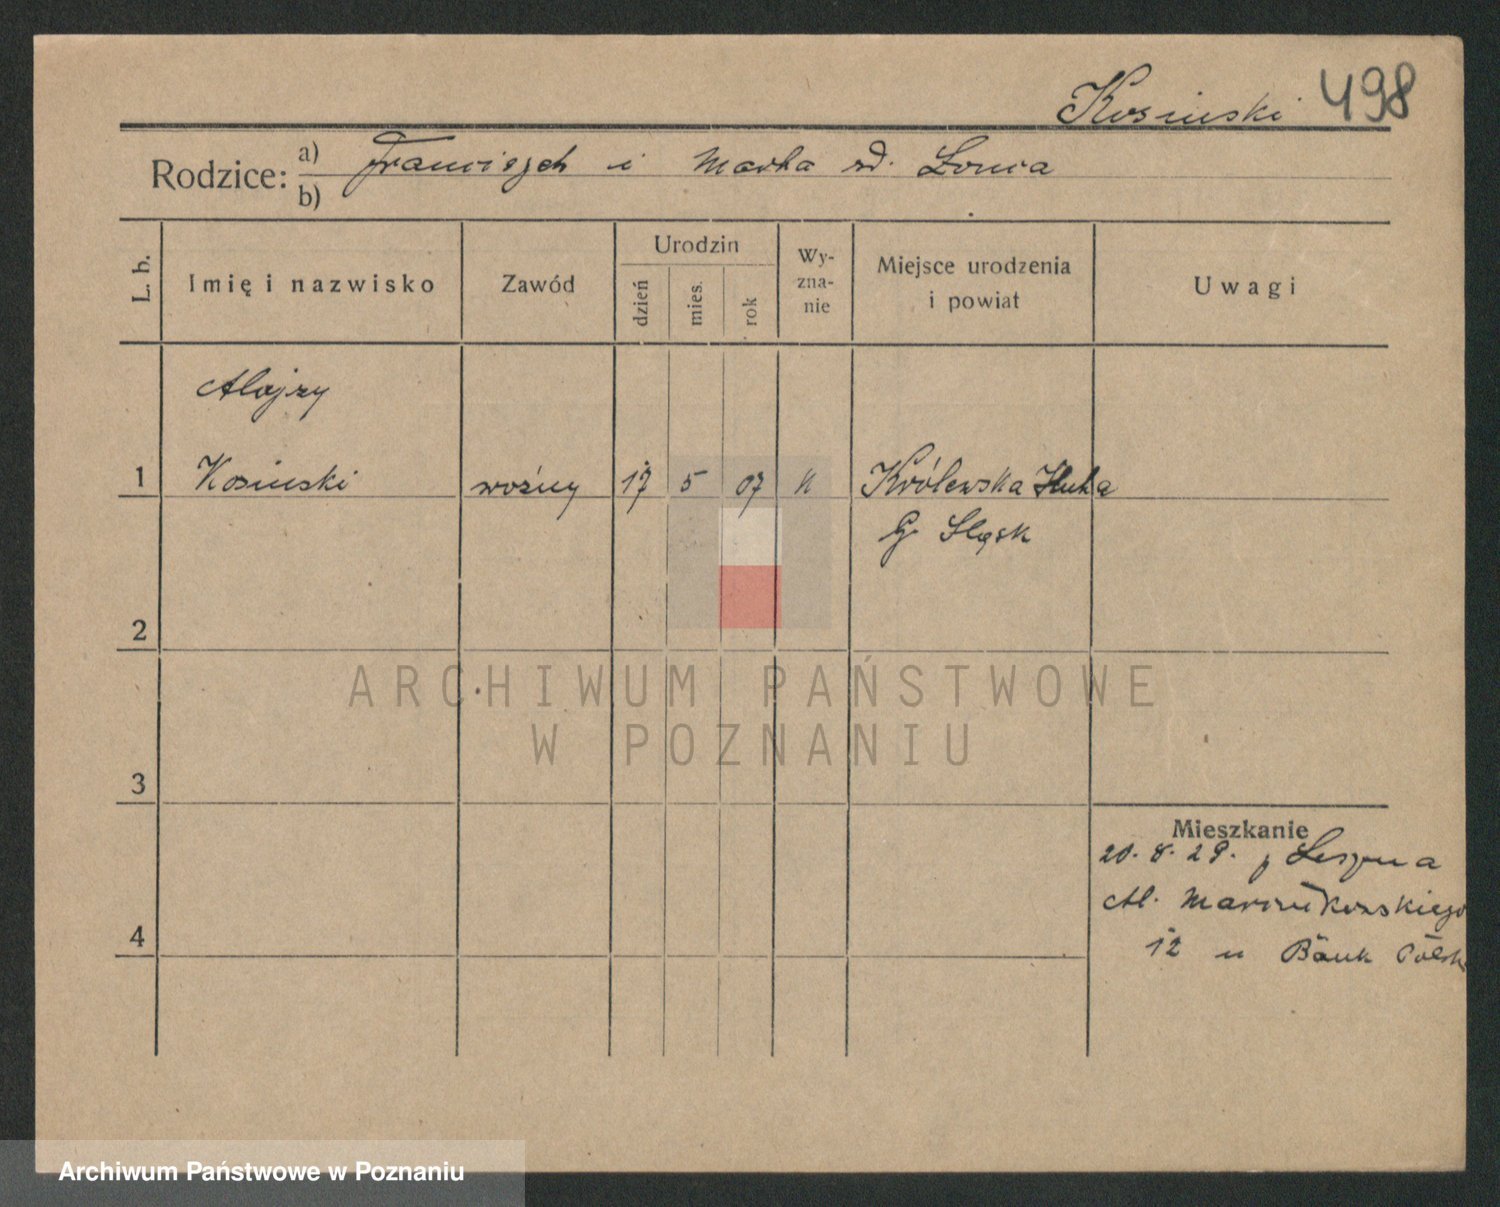 Kosinski 498
Rodzice: a) Franciszek i Marta zd. Lonca
b)
L. b. Imię i nazwisko Zawód Urodzin dzień mies. rok Wy-zna-nie Miejsce urodzenia i powiat Uwagi
Alojzy
1 Kosinski woźny 17 5 07 k Królewska Huta
G. Sląsk
2
ARCHIWUM PAŃSTWOWE
W POZNANIU
3
Mieszkanie
20.8.29. z Leszna
Al. Marcinkowskiego
4 12 u Bank Polski
Archiwum Państwowe w Poznaniu